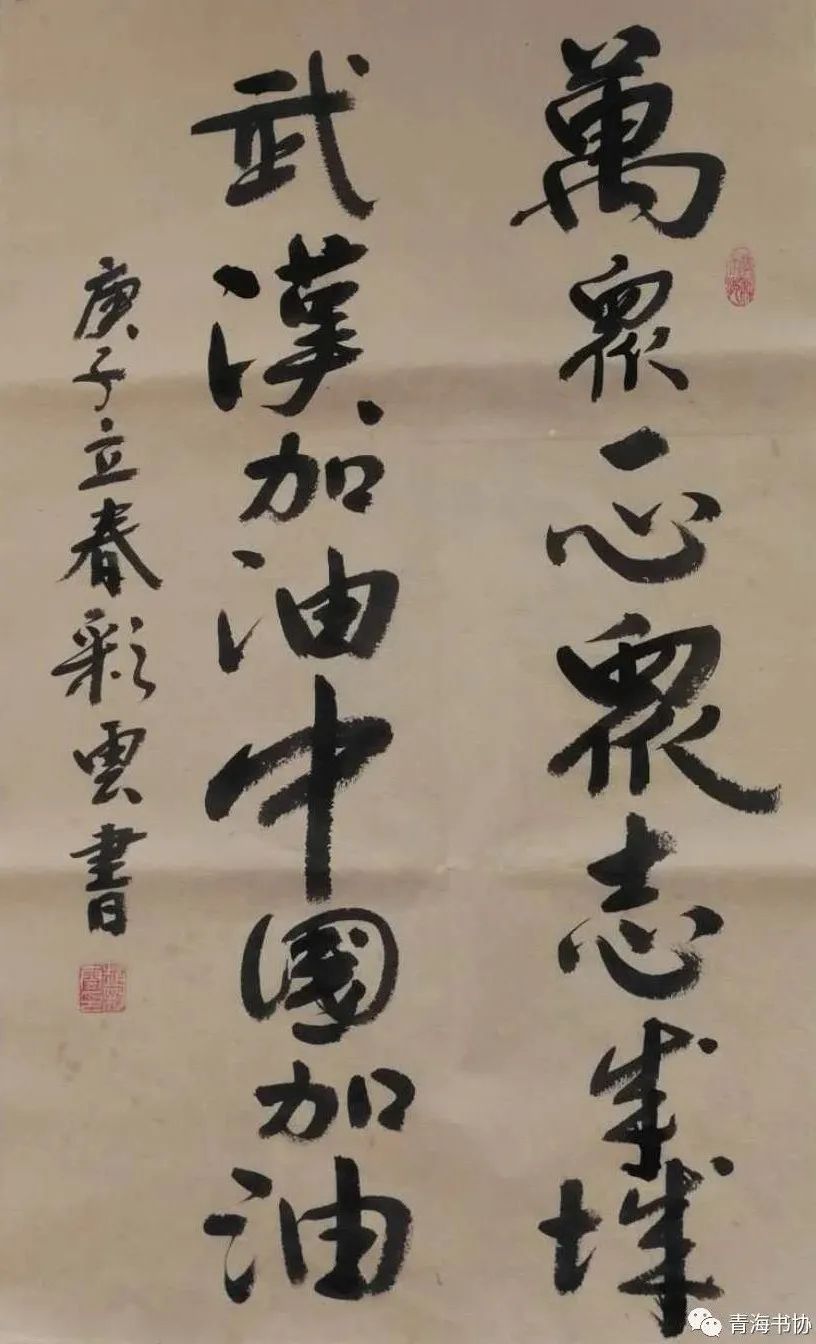 萬眾一心眾志成城
武漢加油中國加油
庚子立春彩雲書
青海书协